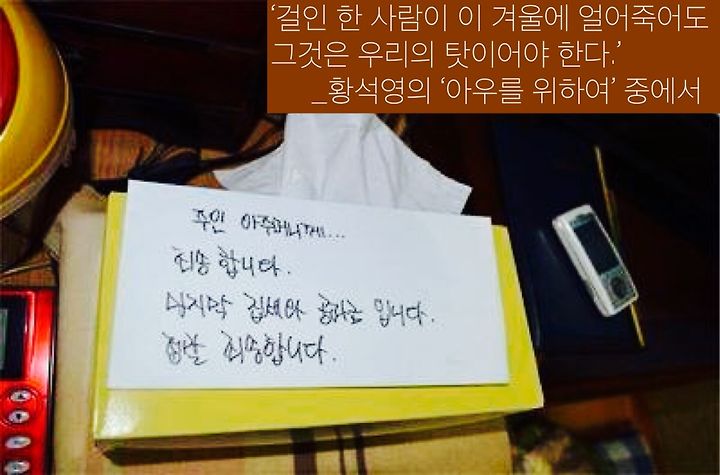 ‘걸인 한 사람이 이 겨울에 얼어죽어도
그것은 우리의 탓이어야 한다.’
_황석영의 ‘아우를 위하여’ 중에서
주인 아주머니께...
죄송합니다.
마지막 집세와 공과금 입니다.
정말 죄송합니다.